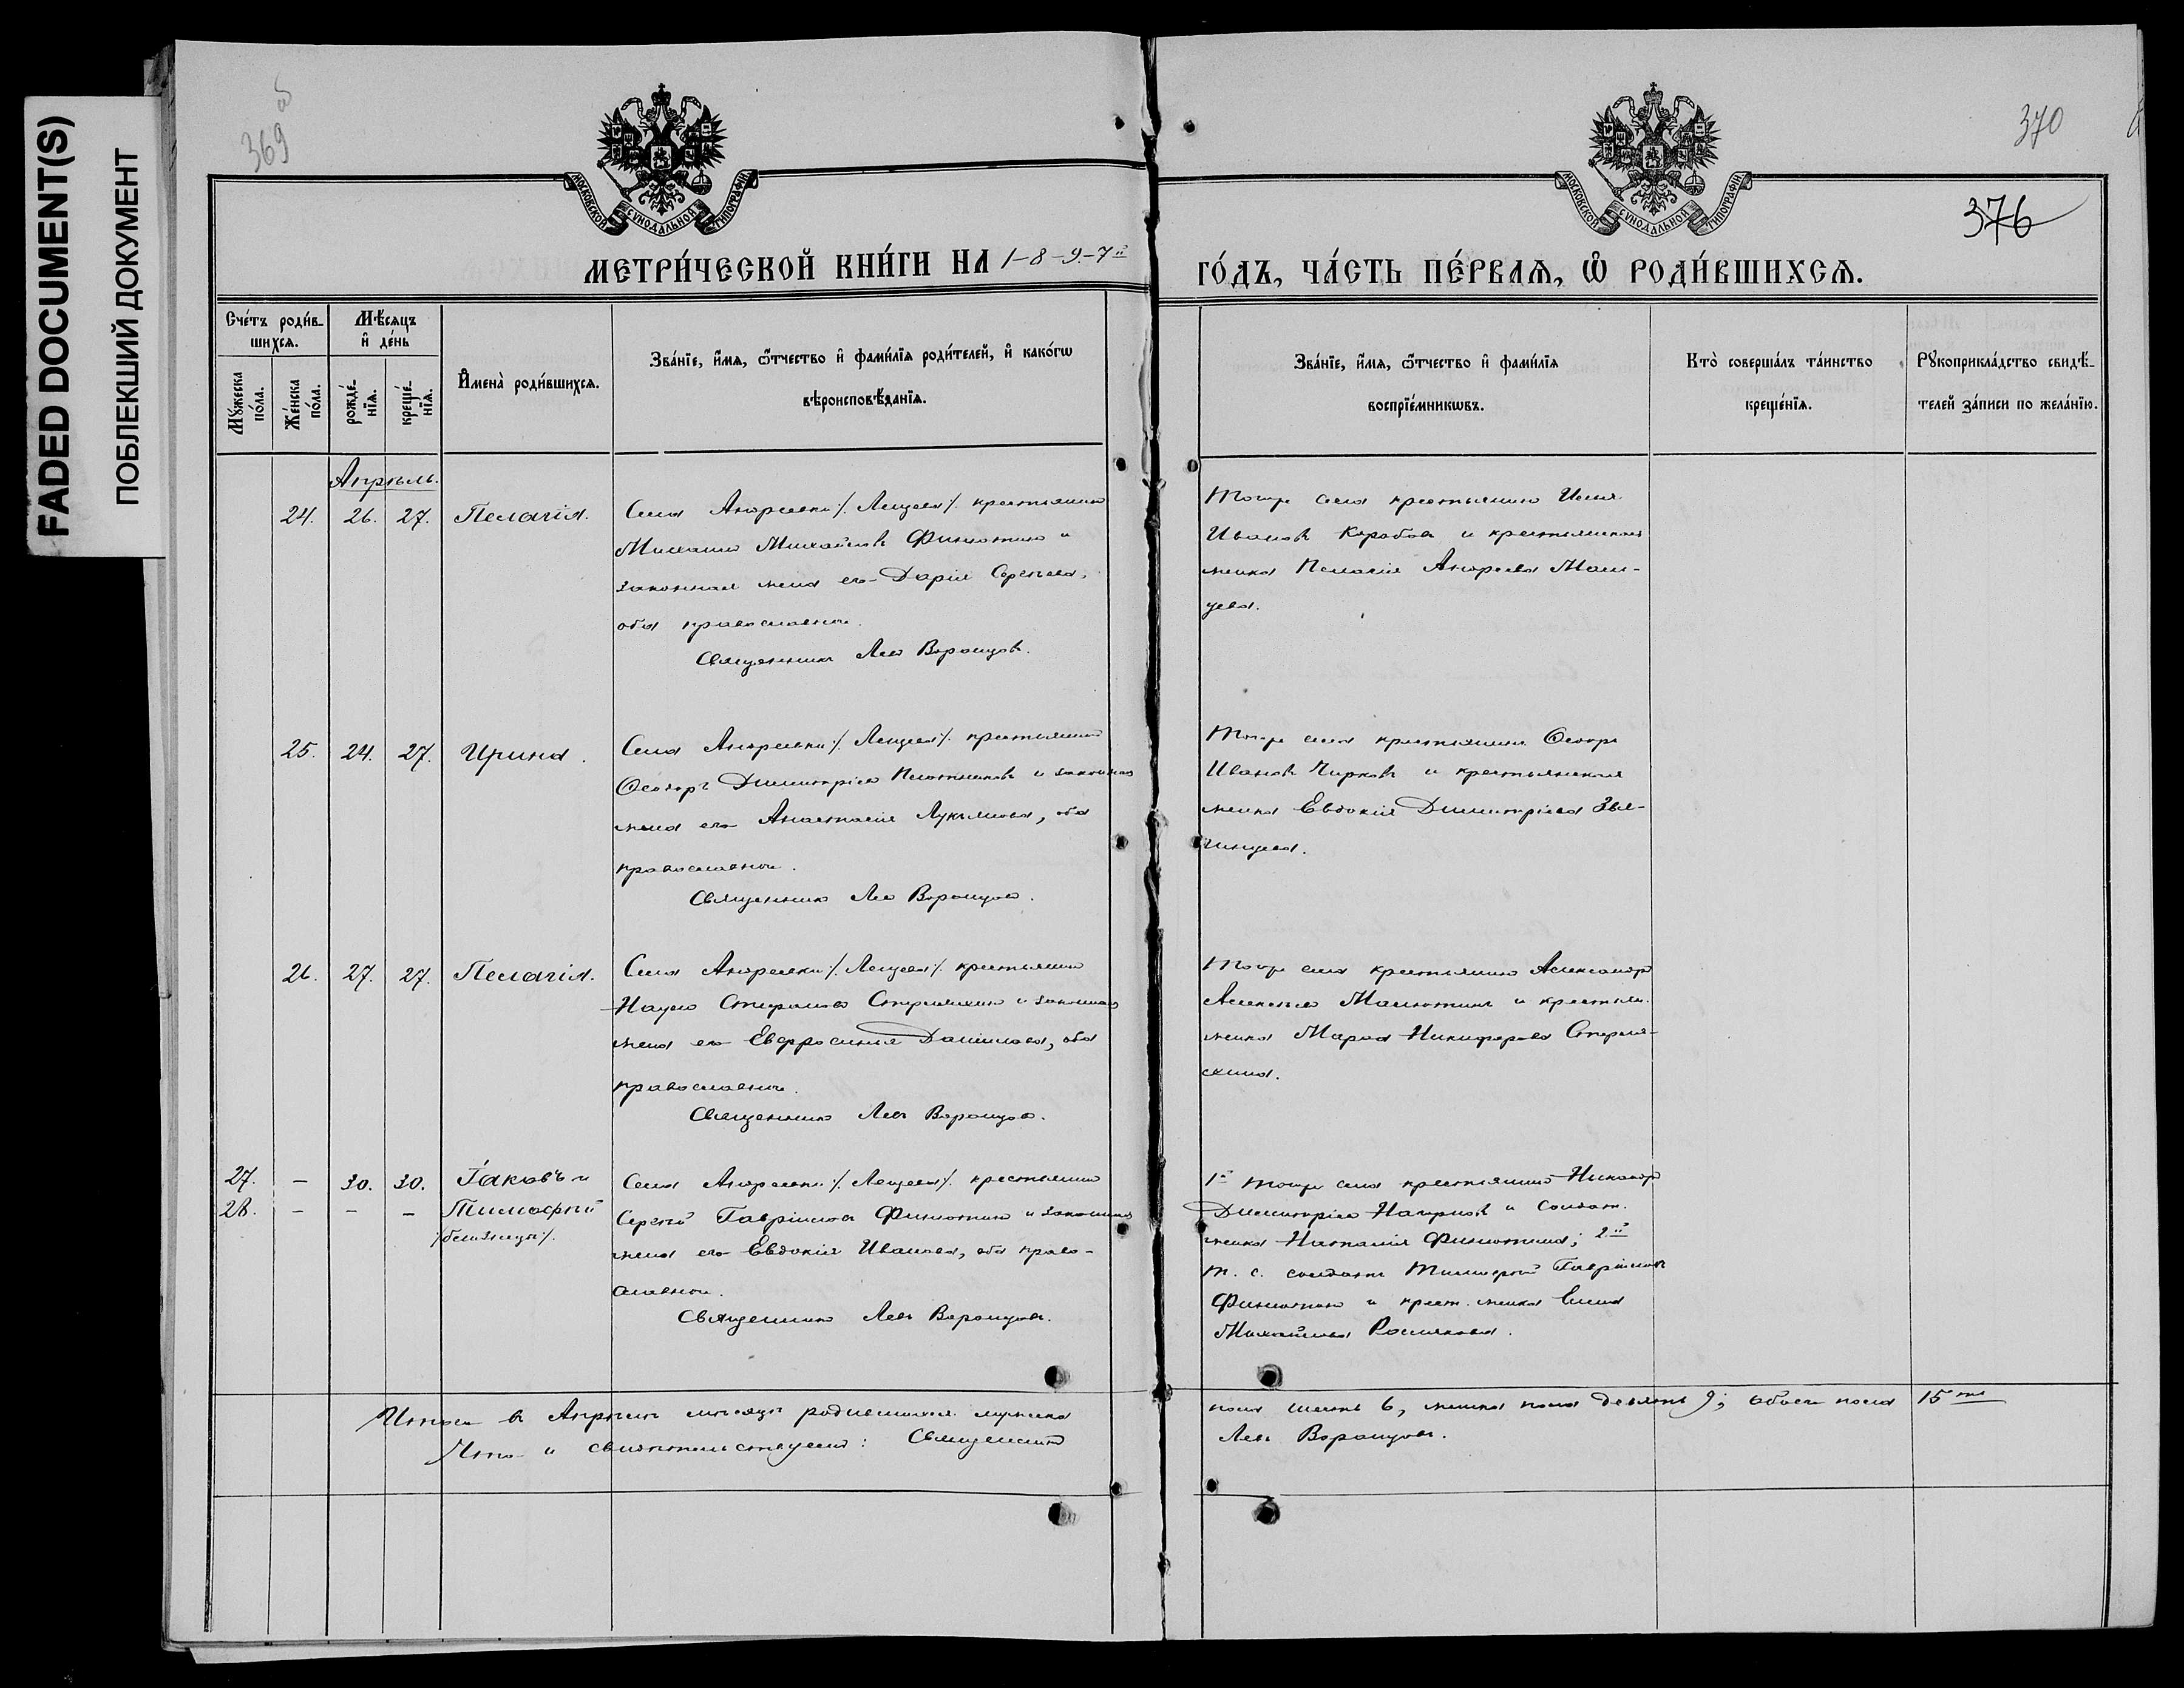 FADED DOCUMENT(S)
ПОБЛЕКШИЙ ДОКУМЕНТ
369 об
370
376
МОСКОВСКОЙ СѴНОДАЛЬНОЙ ТИПОГРАФІИ
МОСКОВСКОЙ СѴНОДАЛЬНОЙ ТИПОГРАФІИ
МЕТРИ́ЧЕСКОЙ КНИ́ГИ НА 1-8-9-7й
ГО́ДЪ, ЧА́СТЬ ПЕ́РВАѦ, Ѽ РОДИ́ВШИХСѦ.
Сче́тъ роди́в-
шихсѧ.
Мꙋжеска по́ла.
Же́нска по́ла.
Мѣ́сѧцъ
и҆ де́нь
рожде́-
нїѧ.
креще́-
нїѧ.
И҆мена̀ роди́вшихсѧ.
Зва́нїе, и҆́мѧ, ѻ҆́тчество и҆ фами́лїѧ роди́телей, и҆ како́гѡ
вѣроисповѣ́данїѧ.
Зва́нїе, и҆́мѧ, ѻ҆́тчество и҆ фами́лїѧ
воспрїе́мникѡвъ.
Кто̀ соверша́лъ та́инство
креще́нїѧ.
Рꙋкоприкла́дство свидѣ́-
телей за́писи по жела́нїю.
Апрѣль.
24. 26. 27. Пелагія.
Села Андреевки /. Ленцева /. крестьянинъ
Михаилъ Михайловъ Филютинъ и
законная жена его Дарія Сергѣева,
оба православные.
Священникъ Левъ Воронцовъ.
Тогоже села крестьянинъ Илья
Ивановъ и крестьянская
женка Пелагія Андреева
25. 24. 27. Ирина.
Села Андреевки /. Ленцева /. крестьянинъ
Ѳеодоръ Димитріевъ Плотниковъ и законная
жена его Анастасія Лукьянова, оба
православные.
Священникъ Левъ Воронцовъ.
Тогоже села крестьянинъ Ѳеодоръ
Ивановъ Чирковъ и крестьянская
женка Евдокія Димитріева Звя-
гинцева.
26. 27. 27. Пелагія.
Села Андреевки /. Ленцева /. крестьянинъ
Наумъ Стефановъ и законная
жена его Евфросинія Даніилова, оба
православные.
Священникъ Левъ Воронцовъ.
Тогоже села крестьянинъ Александръ
Алексѣевъ и крестьян.
женка Марѳа Никифорова
27. – 30. 30. Іаковъ и
28. – – – Тимоѳей
/близнецы/.
Села Андреевки /. Ленцева /. крестьянинъ
Сергѣй Гавріиловъ Филютинъ и законная
жена его Евдокія Иванова, оба право-
славные.
Священникъ Левъ Воронцовъ.
1й тогоже села крестьянинъ Никандръ
Димитріевъ и солдат.
женка Наталія Филютина; 2й
т. с. солдатъ Тимоѳей Гавріиловъ
Филютинъ и крест. женка
Михайлова
Итого въ Апрѣлѣ мѣсяцѣ родившихся мужеска
пола шесть 6, женска пола девять 9; обоего пола 15ть
Что и свидѣтельствуемъ: Священникъ
Левъ Воронцовъ.